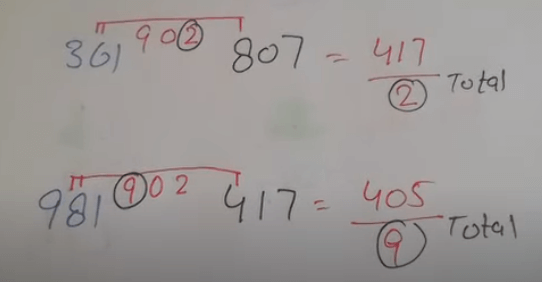 361 902 807 = 417
2 Total
981 902 417 = 405
9 Total